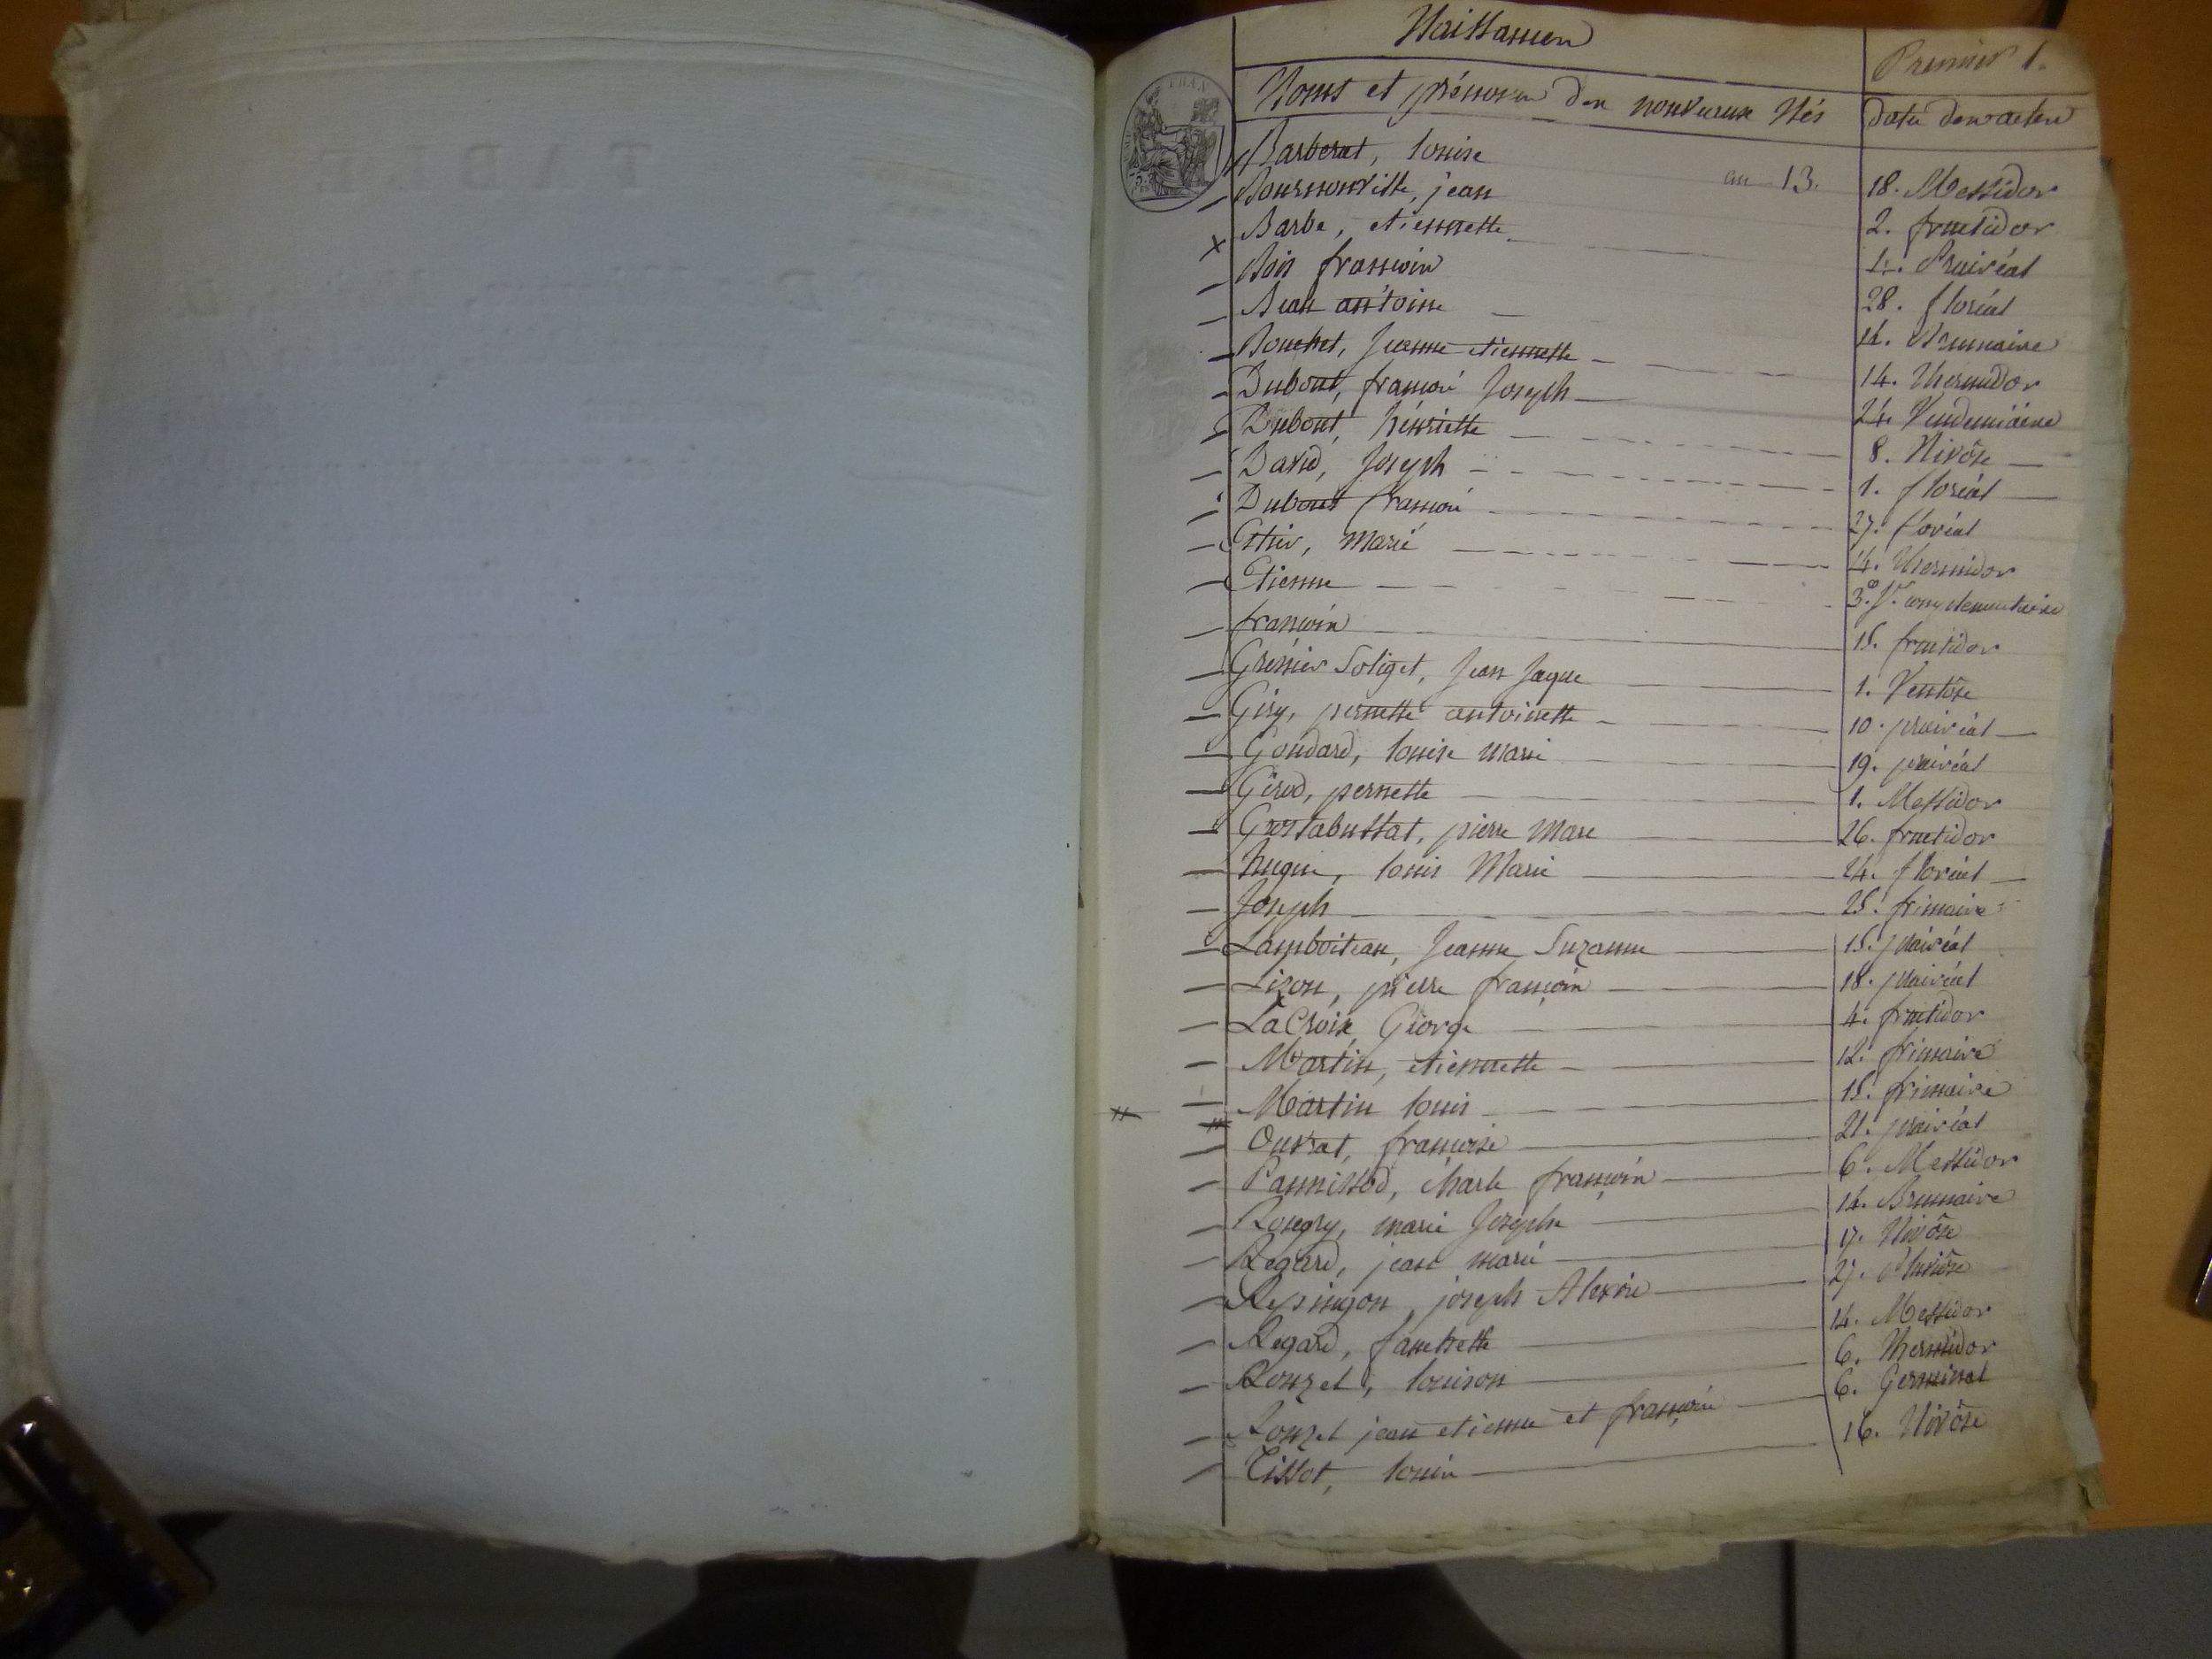 Naissances
Premier 1.
Noms et prénoms des nouveaux Nés
Date des actes
Barberat, louise an 13. 18. Messidor
Bournonville, jean 2. fructidor
Barbe, etiennette 1. Prairéal
Bois françois 28. floréal
Jean antoine Brumaire
Bouchet, Jeanne etiennette 14. thermidor
Dubout, françois Joseph 24. Vendemiaire
Dubout, hénriette 8. Nivôse
David, Joseph 1. floréal
Dubout françois 27. floréal
Marie 14. thermidor
Etienne 3e. Jr. complementaire
françois 15. fructidor
Grénier Soliget, Jean Jaque 1. Ventôse
Giry, pernette antoinette 10. prairéal
Goudard, louise marie 19. prairéal
Girod, pernette 1. Messidor
Grostabussat, pierre Marc 26. fructidor
hugue, louis Marie 24. floréal
Joseph 25. frimaire
Lamboiteau, Jeanne Suzanne 15. prairéal
Lizon, pierre françois 18. prairéal
LaCroix George 4. fructidor
Martin, etiennette 12. frimaire
Martin louis 15. frimaire
Ouvrat, françoise 21. prairéal
Pannissod, charle françois 6. Messidor
marie Josephe Brumaire
Regard, jean marie 17. Nivôse
joseph Alexis 27. Pluviôse
Regard, fanchette 14. Messidor
Rouzet, louison 6. thermidor
Rouzet jean etienne et françois 6. Germinal
Tissot, louis 16. Nivôse